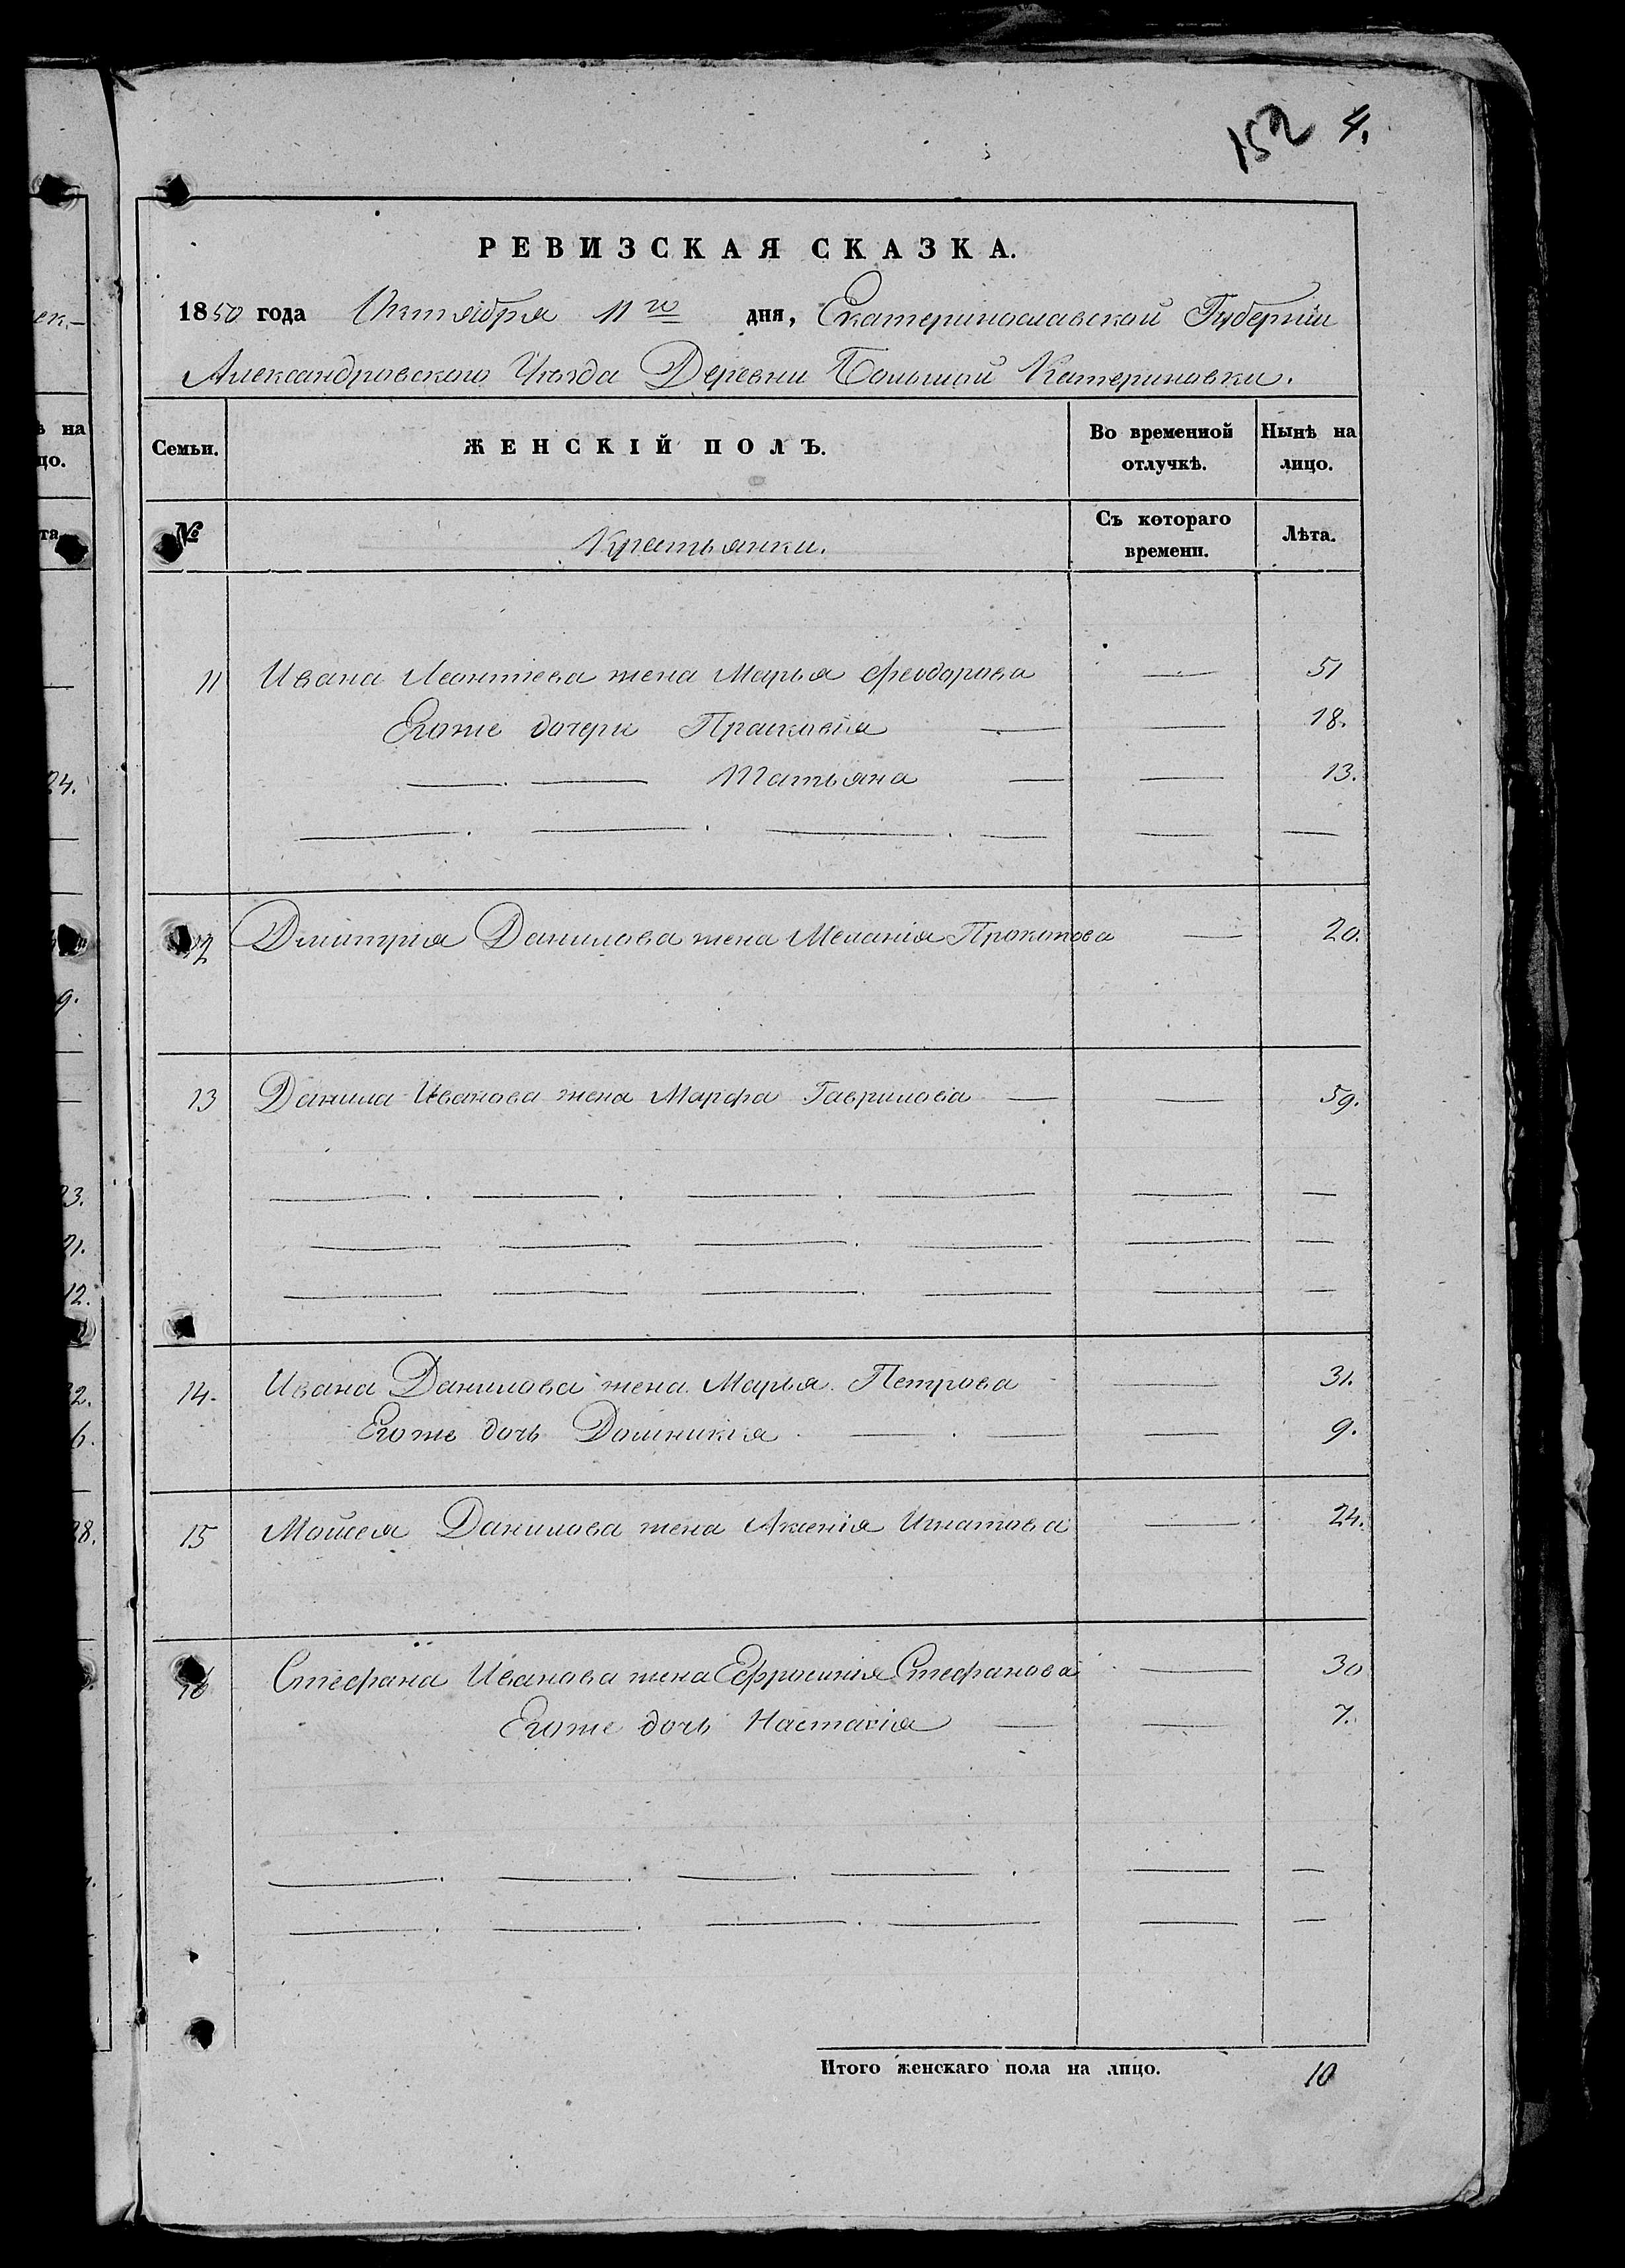 152 4.
РЕВИЗСКАЯ СКАЗКА.
1850 года Октября 11го дня, Екатеринославской Губерніи
Александровского Уѣзда Деревни Большой Катериновки.
Семьи. ЖЕНСКІЙ ПОЛЪ. Во временной отлучкѣ. Нынѣ на лицо.
№ Крестьянки. Съ котораго времени. Лѣта.
11 Ивана Леонтіева жена Марья Феодорова — 51
Егоже дочери Прасковія — — 18.
— . — Татьяна — — 13.
12 Дмитрія Данилова жена Меланія Прокопова — 20.
13 Данила Иванова жена Марфа Гаврилова — — 59.
14. Ивана Данилова жена Марья Петрова — 31.
Егоже дочь Домникія — . — — 9.
15 Мойсея Данилова жена Аксенія Игнатова — 24.
16 Стефана Иванова жена Ефросинія Стефанова — 30
Егоже дочь Настасія — — 7.
Итого женскаго пола на лицо. 10
ек.—
ѣ на
цо.
та
24.
9.
23.
21.
12.
2.
6.
8.